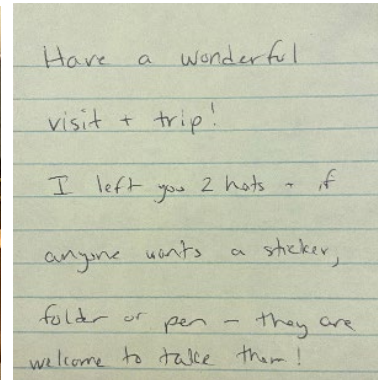 Have a wonderful
visit + trip!
I left you 2 hats + if
anyone wants a sticker,
folder or pen - they are
welcome to take them!